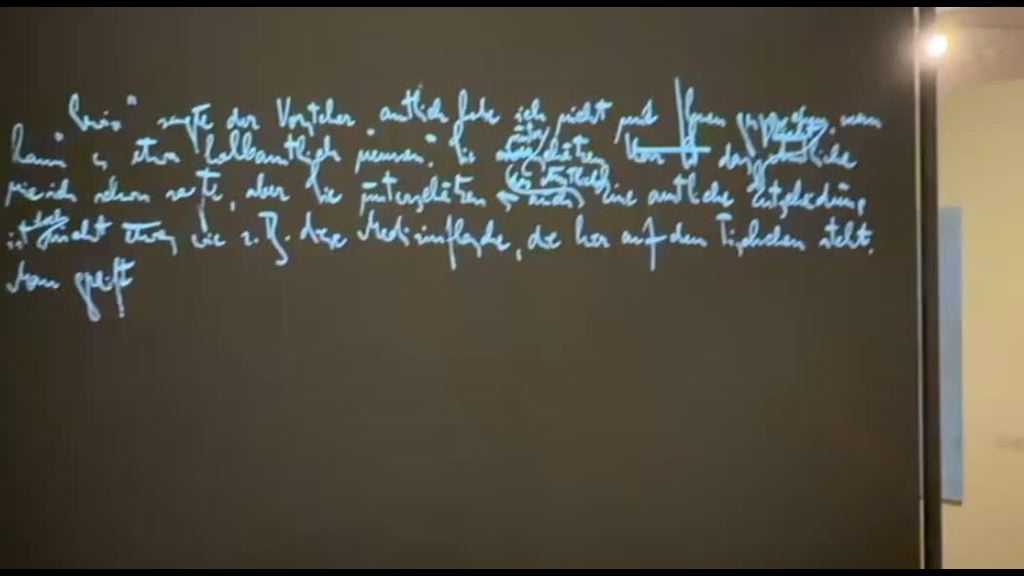 "Nein" sagte der Vorsteher "amtlich habe ich nicht mit Ihnen gesprochen, man
kann es etwa halbamtlich nennen". Sie unterschätzen das Amtliche
wie ich schon sagte, aber Sie unterschätzen eine amtliche Entscheidung
ist doch nicht etwas wie z. B. diese Medizinflasche, die hier auf dem Tischchen steht.
Man greift